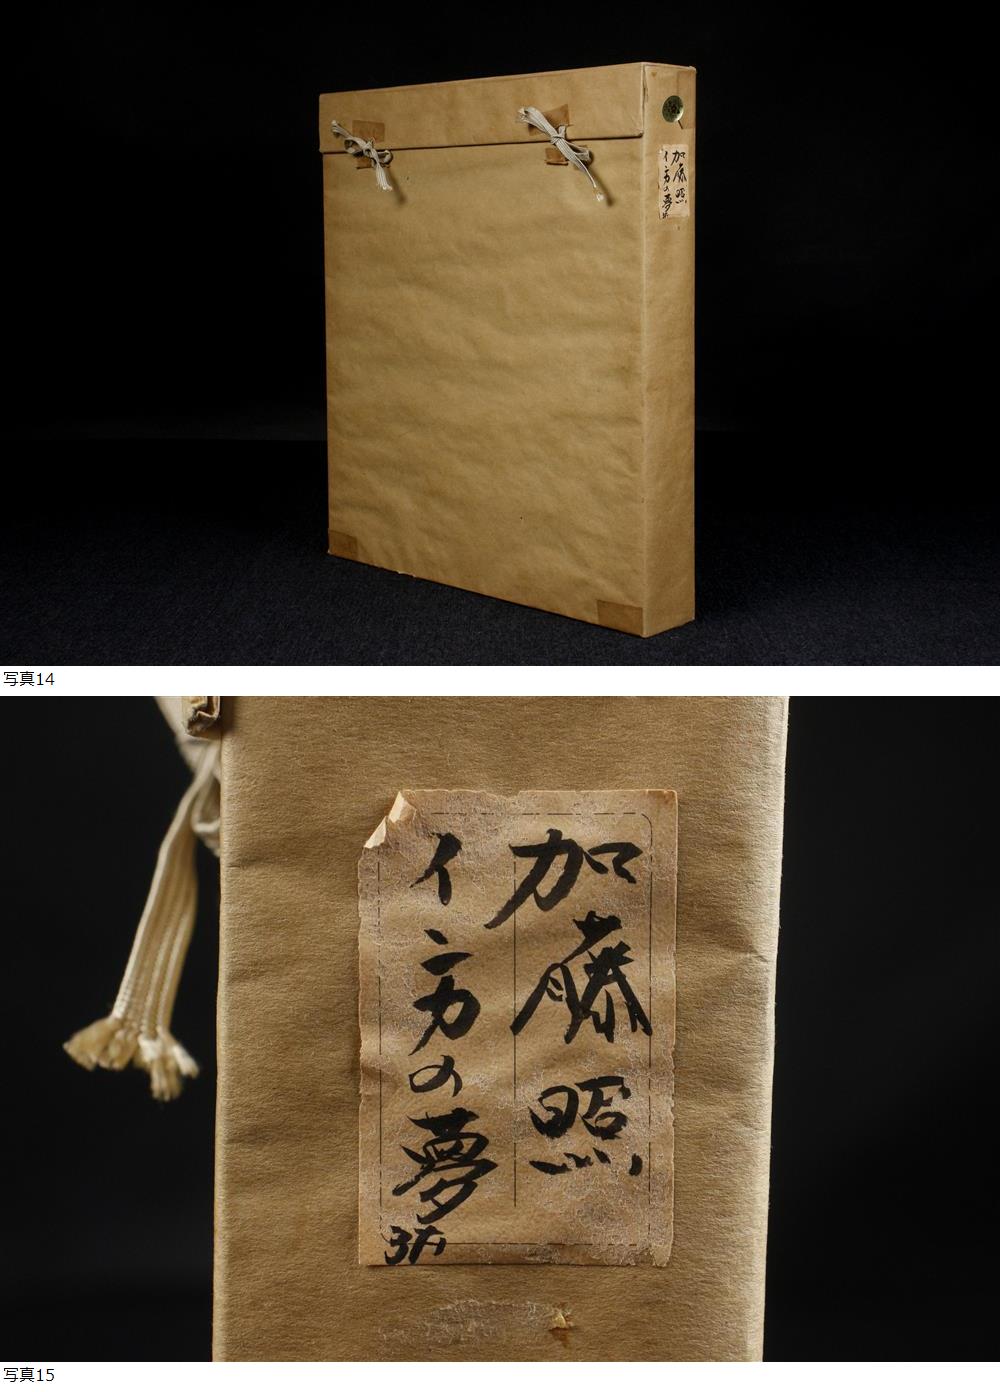 加藤 照
イ方の夢
写真14
加藤 照
イ方の夢
写真15